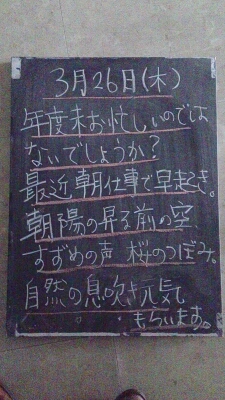 3月26日(木)
年度末お忙しいのでは
ないでしょうか?
最近 朝仕事で早起き。
朝陽の昇る前の空
すずめの声 桜のつぼみ。
自然の息吹き元気
もらいます。